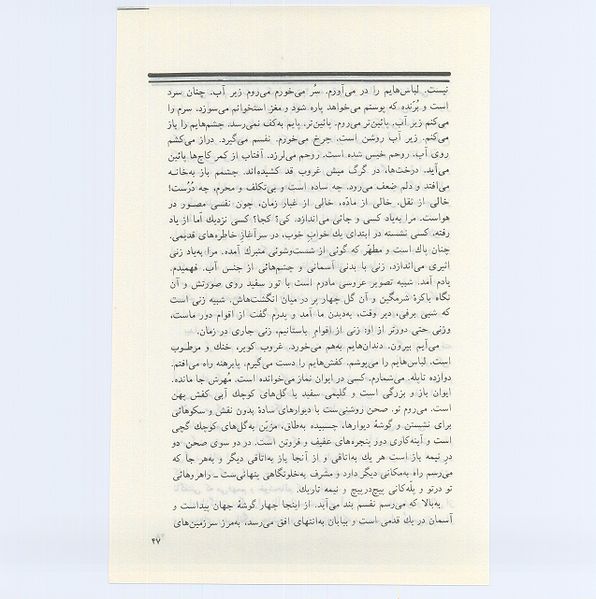 نیست. لباس‌هایم را در می‌آورم. سُر می‌خورم می‌روم زیر آب. چنان سرد
است و بُرّنده که پوستم می‌خواهد پاره شود و مغز استخوانم می‌سوزد. سرم را
می‌کنم زیر آب. پائین‌تر می‌روم. پائین‌تر. پایم به‌کف نمی‌رسد. چشم‌هایم را باز
می‌کنم. زیر آب روشن است. چرخ می‌خورم. نفسم می‌گیرد. دراز می‌کشم
روی آب. روحم خیس شده است. روحم می‌لرزد. آفتاب از کمر کاج‌ها پائین
می‌آید. درخت‌ها، در گرگ میش غروب قد کشیده‌اند. چشمم باز به‌خانه
می‌افتد و دلم ضعف می‌رود. چه ساده است و بی‌تکلف و محرم، چه دُرُست!
خالی از ثقل. خالی از مادّه. خالی از غبار زمان. چون نفسی مصور در
هواست. مرا به‌یاد کسی و جائی می‌اندازد. کی؟ کجا؟ کسی نزدیك اما از یاد
رفته. کسی نشسته در ابتدای یك خواب خوب، در سرآغاز خاطره‌های قدیمی.
چنان پاك است و مطهّر که گوئی از شست‌وشوئی متبرك آمده. مرا به‌یاد زنی
اثیری می‌اندازد، زنی با بدنی آسمانی و چشم‌هائی از جنس آب. فهمیدم.
یادم آمد. شبیه تصویر عروسی مادرم است با تور سفید روی صورتش و آن
نگاه باکرهٔ شرمگین و آن گل چهار پر در میان انگشت‌هاش. شبیه زنی است
که شبی برفی، دیر وقت، به‌دیدن ما آمد و پدرم گفت از اقوام دور ماست،
وزنی حتی دورتر از او: زنی از اقوام باستانیم، زنی جاری در زمان.
می‌آیم بیرون. دندان‌هایم به‌هم می‌خورد. غروب کویر، خنك و مرطوب
است. لباس‌هایم را می‌پوشم. کفش‌هایم را دست می‌گیرم. پابرهنه راه می‌افتم.
دوازده تاپله. می‌شمارم. کسی در ایوان نماز می‌خوانده است. مُهرش جا مانده.
ایوان باز و بزرگی است و گلیمی سفید با گل‌های کوچك آبی کفش پهن
است. می‌روم تو. صحن روشنی‌ست با دیوارهای سادهٔ بدون نقش و سکوهائی
برای نشستن و گوشهٔ دیوارها، چسبیده به‌طاق، مزیّن به‌گل‌های کوچك گچی
است و آینه‌کاری دور پنجره‌های عفیف و فروتن است. در دو سوی صحن دو
در نیمه باز است هر یك به‌اتاقی و از آنجا باز به‌اتاقی دیگر و به‌هر جا که
می‌رسم راه به‌مکانی دیگر دارد و مشرف به‌خلوتگاهی پنهانی‌ست ــ راهروهائی
تو درتو و پلّه‌کانی پیچ‌درپیچ و نیمه تاریك.
به‌بالا که می‌رسم نفسم بند می‌آید. از اینجا چهار گوشهٔ جهان پیداست و
آسمان در یك قدمی است و بیابان به‌انتهای افق می‌رسد، به‌مرز سرزمین‌های
۴۷